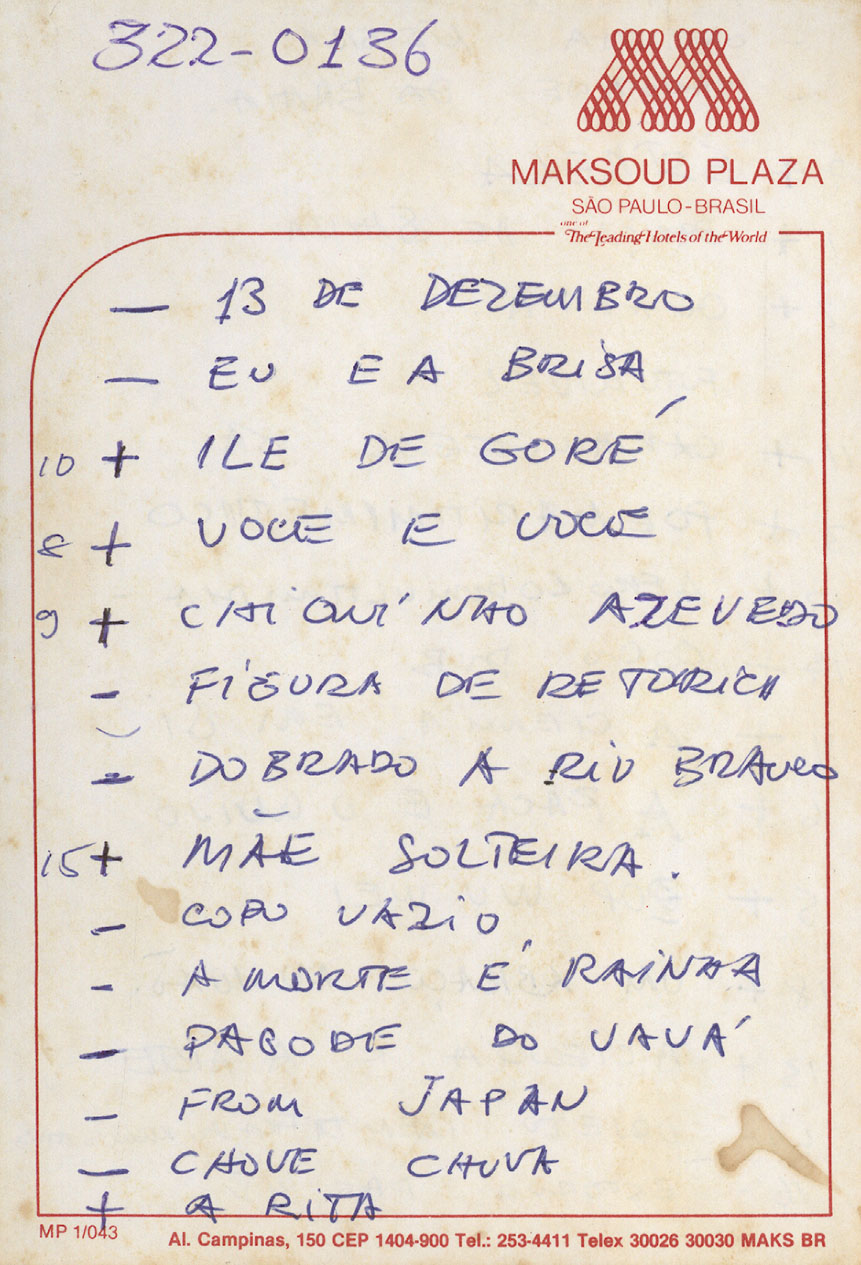 322-0136
MAKSOUD PLAZA
SÃO PAULO-BRASIL
one of
The Leading Hotels of the World
— 13 DE DEZEMBRO
— EU E A BRISA
10 + ILE DE GORÉ
8 + VOCE E VOCE
9 + CHIQUINHO AZEVEDO
- FIGURA DE RETORICA
- DOBRADO A RIO BRANCO
15 + MÃE SOLTEIRA.
- COPO VAZIO
- A MORTE É RAINHA
- PAGODE DO VAVÁ
- FROM JAPAN
— CHOVE CHUVA
+ A RITA
MP 1/043
Al. Campinas, 150 CEP 1404-900 Tel.: 253-4411 Telex 30026 30030 MAKS BR